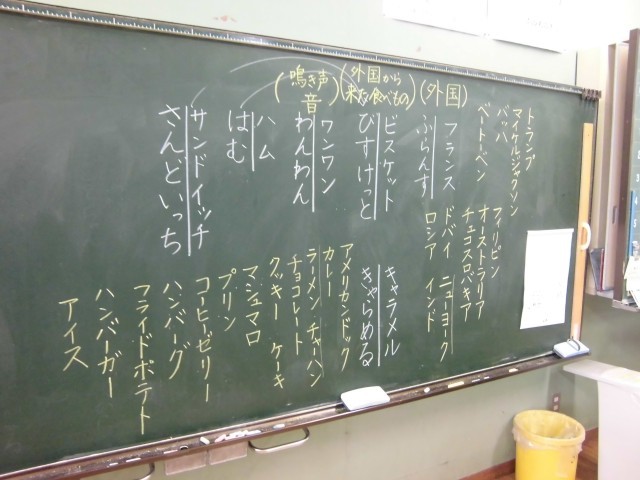 トランプ
マイケルジャクソン
バッハ
ベートーベン
(外国)
フランス
ふらんす
フィリピン
オーストラリア
チェコスロバキア
ドバイ ニューヨーク
ロシア インド
(外国から
来た食べもの)
ビスケット
びすけっと
キャラメル
きゃらめる
アメリカンドック
カレー
(鳴き声
音)
ワンワン
わんわん
ラーメン チャーハン
チョコレート
クッキー ケーキ
ハム
はむ
マシュマロ
プリン
サンドイッチ
さんどいっち
コーヒーゼリー
ハンバーグ
フライドポテト
ハンバーガー
アイス